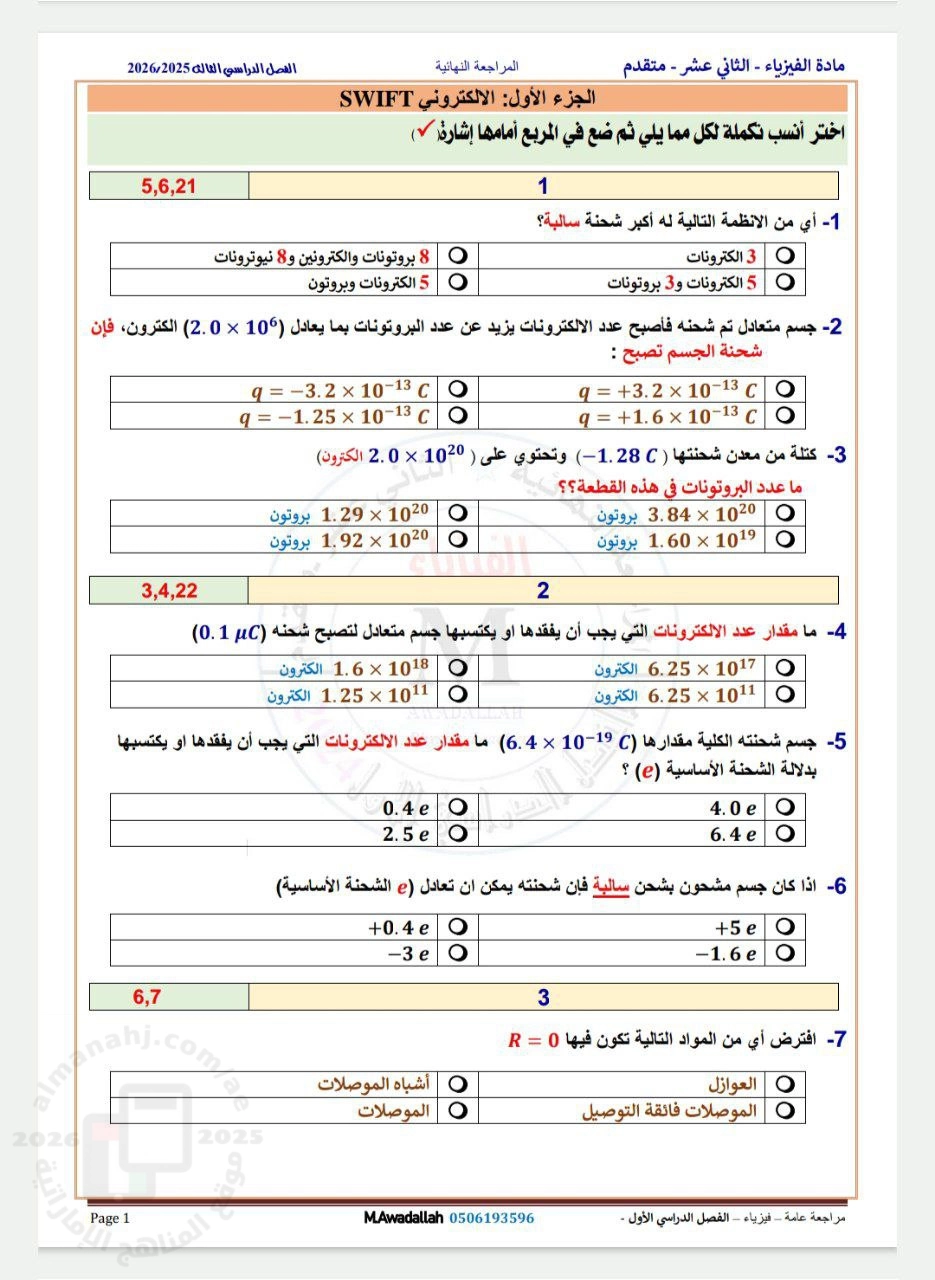 مادة الفيزياء - الثاني عشر - متقدم المراجعة النهائية الفصل الدراسي الثالث 2026/2025
الجزء الأول: الالكتروني SWIFT
اختر أنسب تكملة لكل مما يلي ثم ضع في المربع أمامها إشارة (✓)
1 5,6,21
1- أي من الانظمة التالية له أكبر شحنة سالبة؟
3 الكترونات 8 بروتونات والكترونين و8 نيوترونات
5 الكترونات و3 بروتونات 5 الكترونات وبروتون
2- جسم متعادل تم شحنه فأصبح عدد الالكترونات يزيد عن عدد البروتونات بما يعادل (2.0 × 10⁶) الكترون، فإن
شحنة الجسم تصبح :
q = +3.2 × 10⁻¹³ C q = −3.2 × 10⁻¹³ C
q = +1.6 × 10⁻¹³ C q = −1.25 × 10⁻¹³ C
3- كتلة من معدن شحنتها (−1.28 C) وتحتوي على (2.0 × 10²⁰ الكترون)
ما عدد البروتونات في هذه القطعة؟؟
3.84 × 10²⁰ بروتون 1.29 × 10²⁰ بروتون
1.60 × 10¹⁹ بروتون 1.92 × 10²⁰ بروتون
2 3,4,22
4- ما مقدار عدد الالكترونات التي يجب أن يفقدها او يكتسبها جسم متعادل لتصبح شحنه (0.1 μC)
6.25 × 10¹⁷ الكترون 1.6 × 10¹⁸ الكترون
6.25 × 10¹¹ الكترون 1.25 × 10¹¹ الكترون
5- جسم شحنته الكلية مقدارها (6.4 × 10⁻¹⁹ C) ما مقدار عدد الالكترونات التي يجب أن يفقدها او يكتسبها
بدلالة الشحنة الأساسية (e) ؟
4.0 e 0.4 e
6.4 e 2.5 e
6- اذا كان جسم مشحون بشحن سالبة فإن شحنته يمكن ان تعادل (e الشحنة الأساسية)
+5 e +0.4 e
−1.6 e −3 e
3 6,7
7- افترض أي من المواد التالية تكون فيها R = 0
العوازل أشباه الموصلات
الموصلات فائقة التوصيل الموصلات
مراجعة عامة – فيزياء – الفصل الدراسي الأول - M.Awadallah 0506193596 Page 1
الفيزياء
M
AWADALLAH
almanahj.com/ae
2026 2025
موقع المناهج الإماراتية